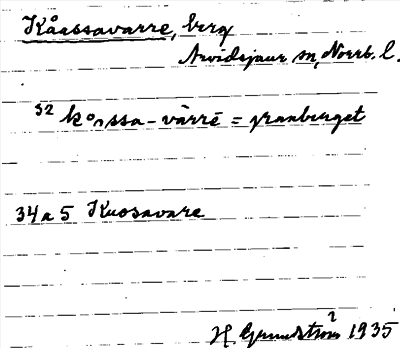 Kåassavarre, berg
Arvidsjaur sn, Norrb. l.
52 kåₐssa-vàrrē = granberget
34 a 5 Kuosavare
H Grundström 1935